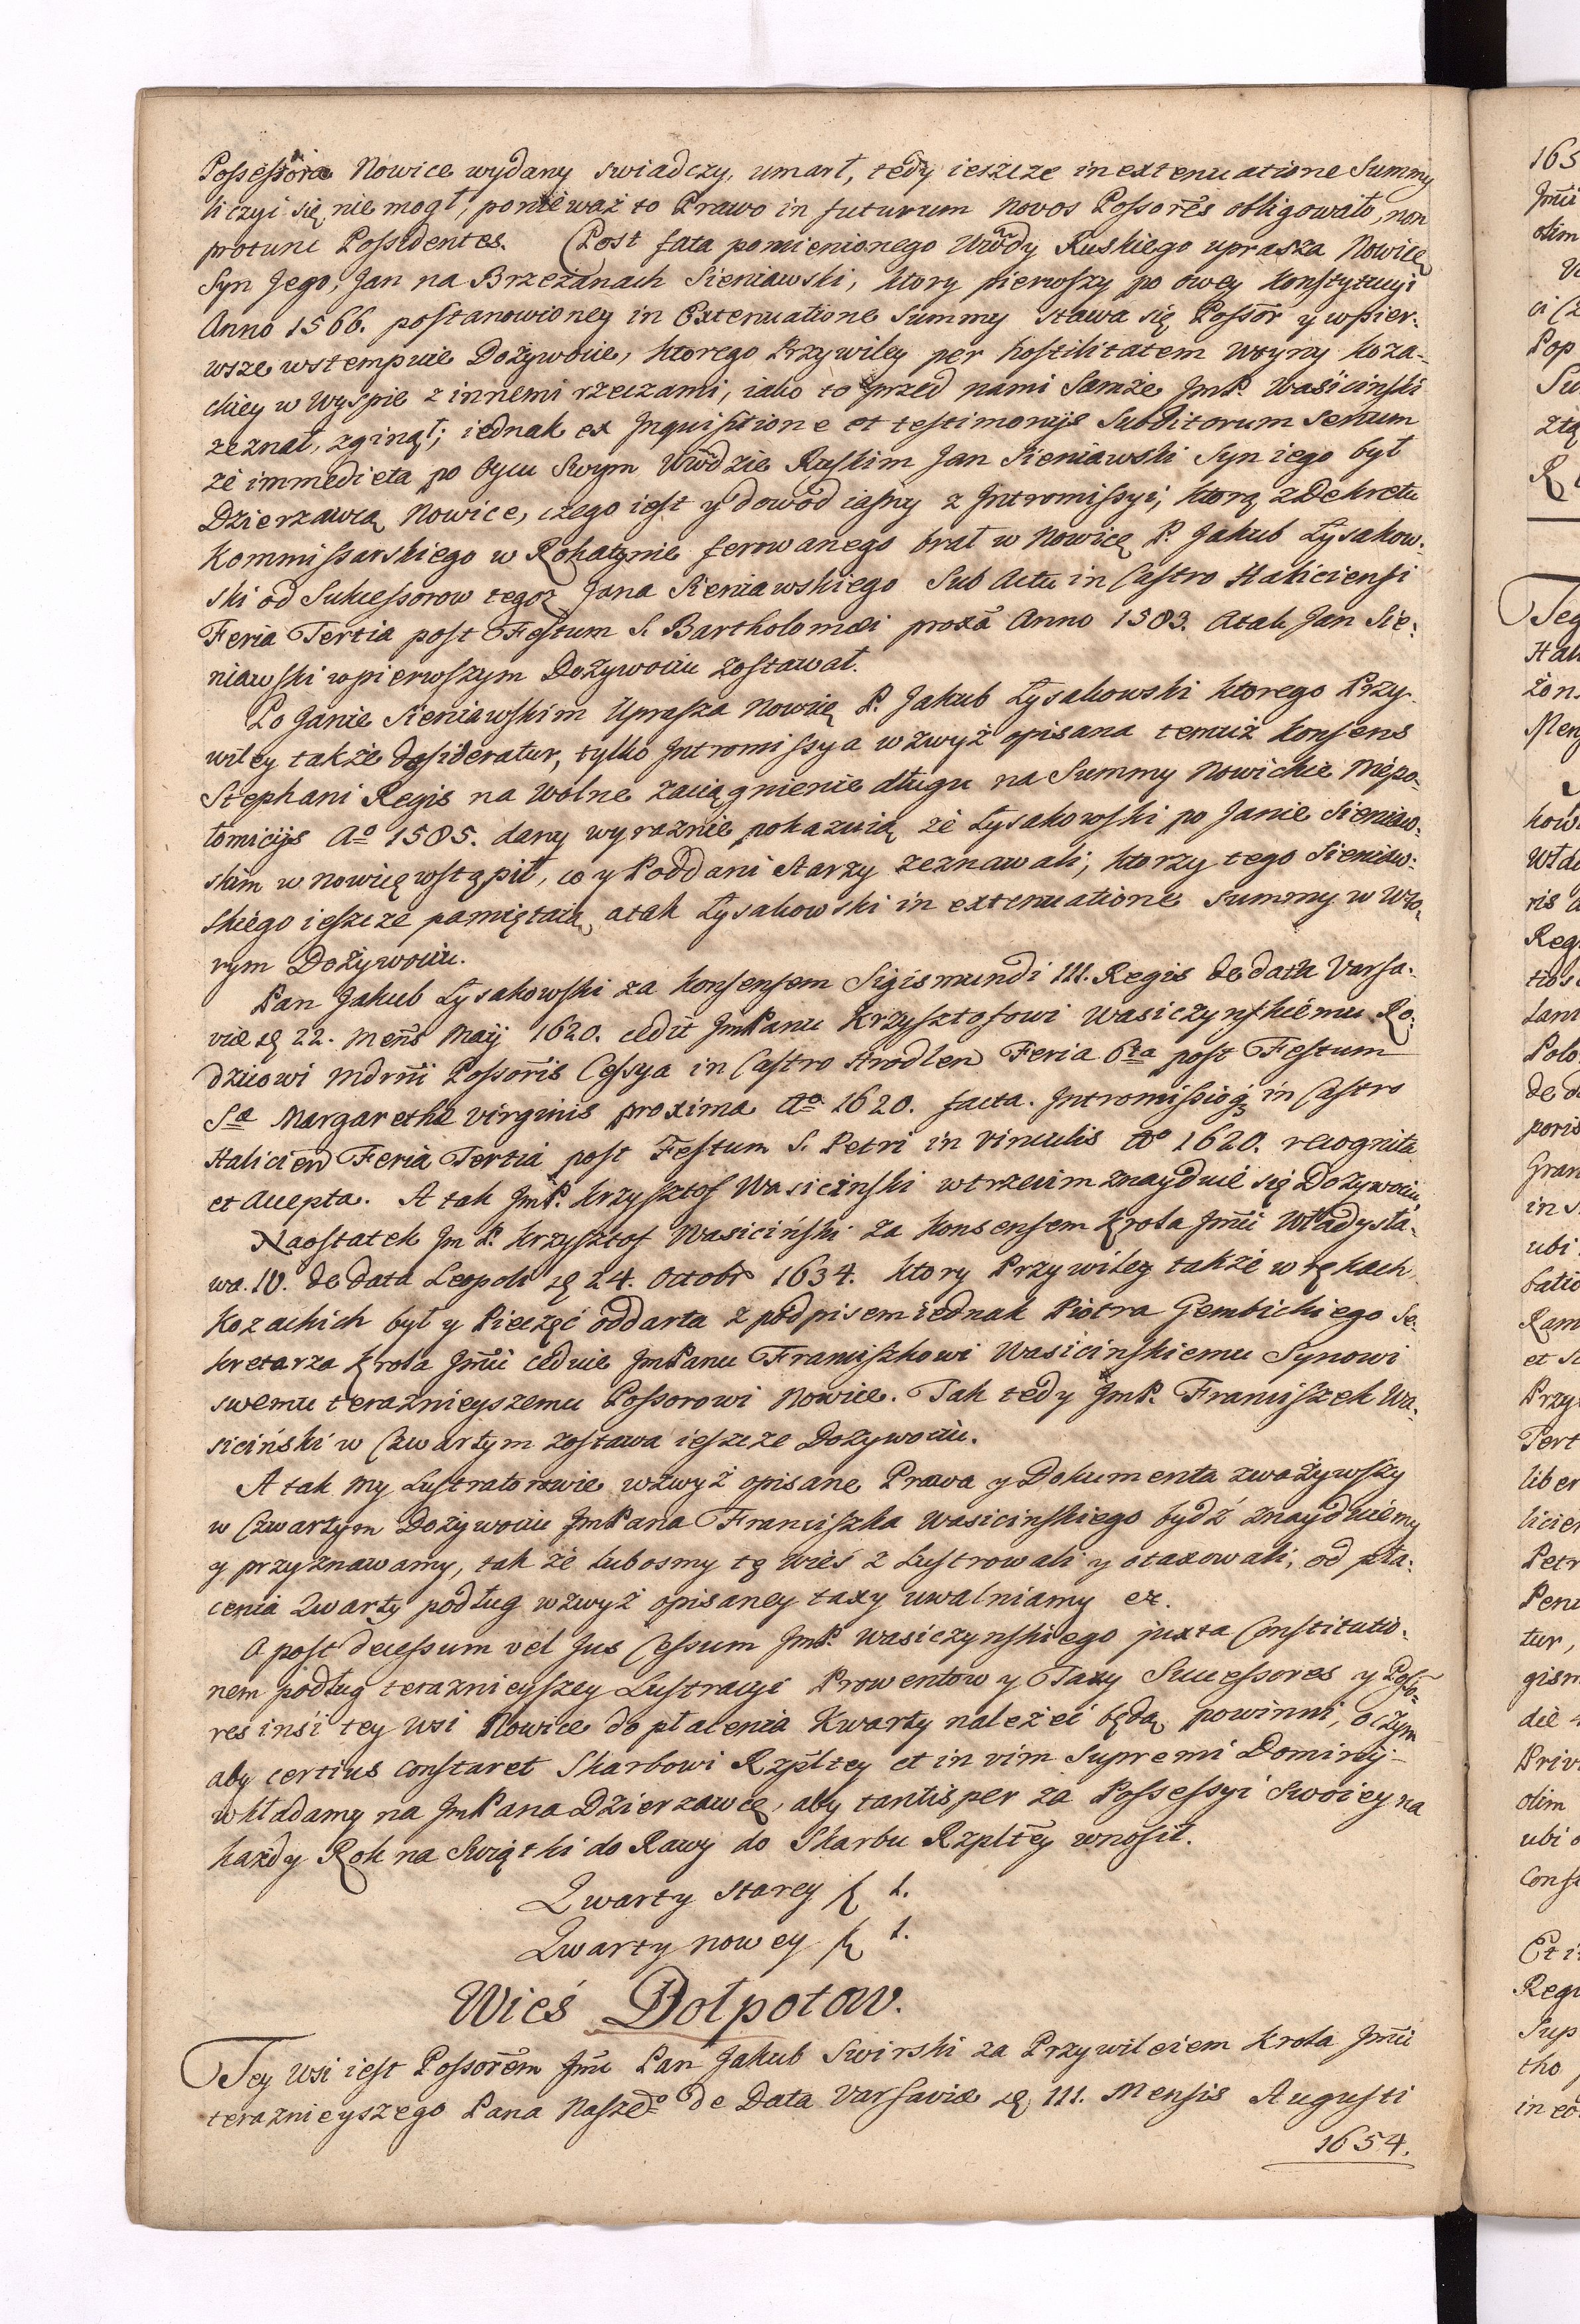 Possessora Nowice wydany swiadczy, umarł, tedy ieszcze in extenuatione Summy
liczyi się nie mogł, ponieważ to Prawo in futurum novos Possores obligowało, non
protunc Possidentes. Post fata pomienionego Wwdy Ruskiego uprasza Nowicę
Syn Jego, Jan na Brzezanach Sieniawski, ktory pierwszy po owey Konstytucyi
Anno 1566. postanowioney in Extenuatione Summy stawa się Possor y wpier:
wsze wstempuie Dożywocie, ktorego Przywiley per hostilitatem woyny koza:
ckiey w Wyspie z innemi rzeczami, iako to przed nami Samże JmP. Wasicinski
zeznał, zginął; iednak ex Inquisitione et testimonijs Subditorum Senum
że immedieta po Oycu Swym Wwdzie Ruskim Jan Sieniawski Syn iego był
Dzierzawcą Nowice, czego iest y dowod iasny z Intromissyi, ktorą z Dekretu
Kommissarskiego w Rohatynie ferowanego brał w Nowicę P. Jakub Łysakow:
ski od Sukcessorow tegoz Jana Sieniawskiego Sub Actu in Castro Haliciensi
Feria Tertia post Festum S. Bartholomæi proxa Anno 1583. Atak Jan Sie:
niawski wpierwszym Dożywociu zostawał.
Po Janie Sieniawskim Uprasza Nowicę P. Jakub Łysakowski ktorego Przy:
wiley także desideratur, tylko Intromissya wzwyż opisana temuż konsens
Stephani Regis na wolne zaciągnienie długu na Summy Nowickie Niepo:
łomicijs Ao 1585. dany wyraznie pokazuią że Łysakowski po Janie Sieniaw:
skim w Nowicę wstąpił, co y Poddani Starzy zeznawali, ktorzy tego Sieniaw:
skiego ieszcze pamiętaią, atak Łysakowski in extenuatione Summy w wto:
rym Dożywociu.
Pan Jakub Łysakowski za konsensem Sigismundi III. Regis de data Varsa:
viæ 22. Mens Maij 1620. cedit JmPanu Krzysztofowi Wasiczynskiemu Ro:
dzicowi Mdrni Possoris Cessya in Castro Hrodlen Feria 6ta post Festum
Sæ Margarethæ virginis proxima Ao 1620. facta. Intromissioq in Castro
Halicien Feria Tertia post Festum S. Petri in vinculis Ao 1620. recognita
et accepta. A tak JmP. Krzysztof Wasicinski wtrzecim znayduie się Dożywociu.
Naostatek Jm P. Krzysztof Wasiciński za konsensem krola Jmci Władysła:
wa. IV. de data Leopoli 24. Octobr 1634. ktory Przywiley także w rękach
Kozackich był y Pieczęć oddarta z podpisem iednak Piotra Gembickiego Se:
kretarza krola Jmci ceduie JmPanu Franciszkowi Wasicinskiemu Synowi
swemu teraznieyszemu Possorowi Nowice. Tak tedy JmP. Franciszek Wa:
siciński w Czwartym zostawa ieszcze Dożywociu.
A tak my Lustratorowie wzwyż opisane Prawa y Dokumenta zważywszy
w Czwartym Dożywociu JmPana Franciszka Wasicinskiego bydź znayduiemy
y przyznawamy, tak że lubosmy tę Wieś z Lustrowali y otaxowali, od pła:
cenia Quarty podług wzwyż opisaney taxy uwalniamy et.
A post decessum vel Jus Cessum JmP. Wasiczynskiego juxta Constitutio:
nem podług teraznieyszey Lustracyi Prowentow y Taxy Successores y Posso:
res insi tey wsi Nowice do płacenia Kwarty należeć będą powinni, oczym
aby certius constaret Skarbowi Rzpltey et in vim Supremi Dominij
wkładamy na JmPana Dzierzawcę, aby tantisper za Possessyi Swoiey na
każdy Rok na Swiątki do Rawy do Skarbu Rzpltey wnosił.
Quarty starey 1.
Quarty nowey 1.
Wieś Dołpotow.
Tey Wsi iest Possorem Jmc Pan Jakub Swirski za Przywileiem Krola Jmci
teraznieyszego Pana Naszego de Data Varsaviæ III. Mensis Augusti
1654.